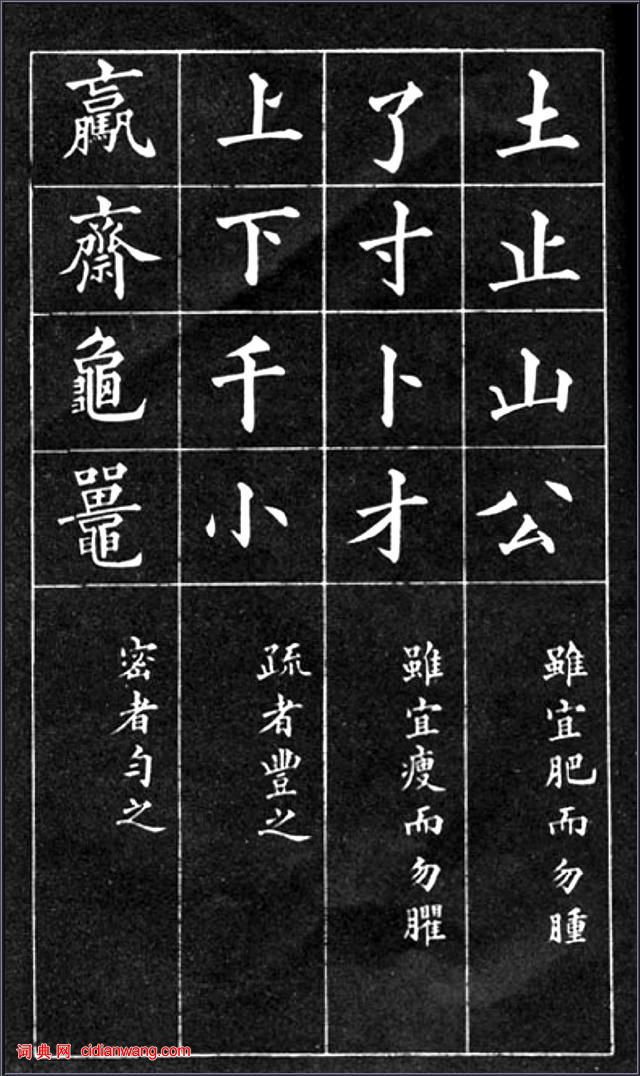 土止山公
雖宜肥而勿腫
了寸卜才
雖宜瘦而勿臞
上下千小
疏者豐之
驘齋龜鼉
密者勻之
词典网 cidianwang.com